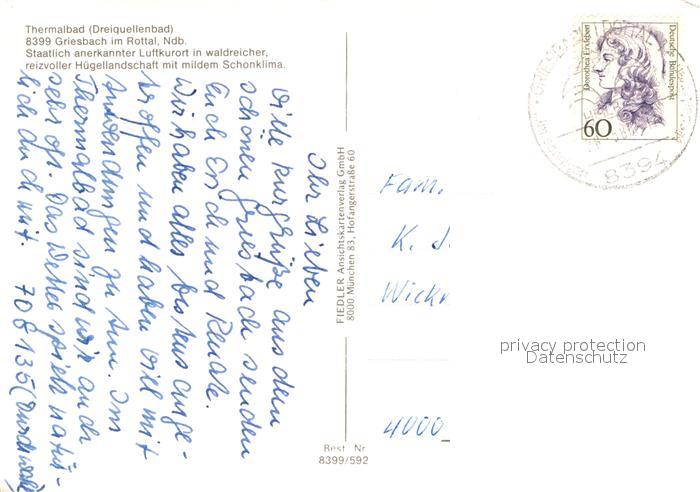 Thermalbad (Dreiquellenbad)
8399 Griesbach im Rottal, Ndb.
Staatlich anerkannter Luftkurort in waldreicher,
reizvoller Hügellandschaft mit mildem Schonklima.
Ihr Lieben
Viele Kurgrüße aus dem
schönen Griesbach senden
Euch Erich und Renate.
Wir haben alles bestens ange-
troffen und haben viel mit
Anwendungen zu tun. Im
Thermalbad sind wir auch
sehr oft. Das Wetter spielt natür-
lich auch mit.
708135 (Durchwahl)
FIEDLER Ansichtskartenverlag GmbH
8000 München 83, Hofangerstraße 60
Best. Nr.
8399/592
Dorothea Erxleben
Deutsche Bundespost
60
GRIESBACH
8394
Fam.
K. J.
Wickr
4000
privacy protection
Datenschutz